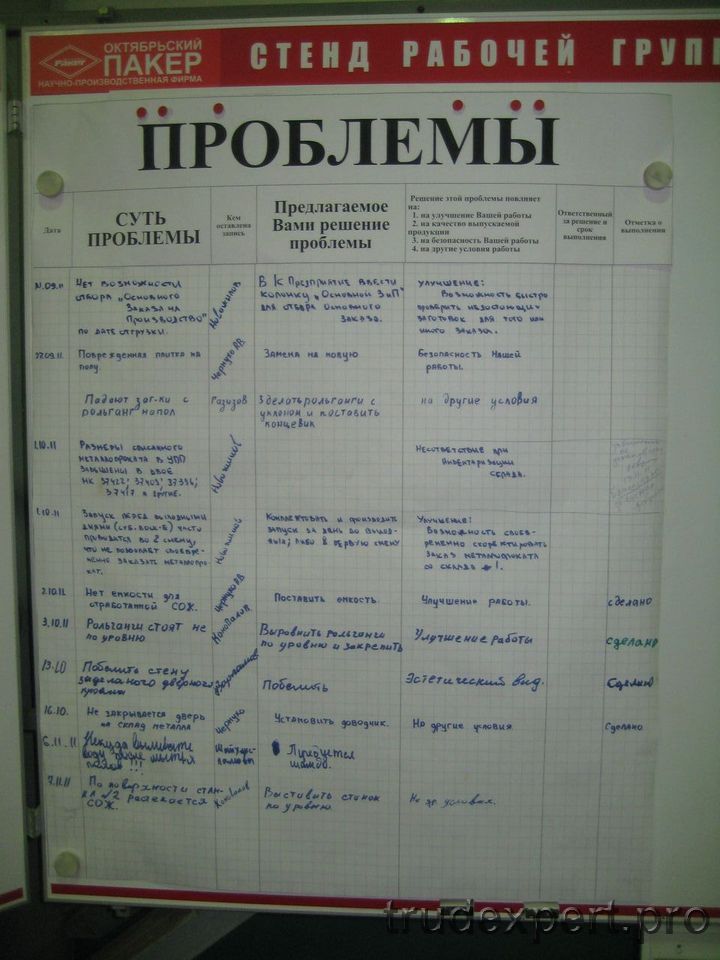 Пакер
ОКТЯБРЬСКИЙ
ПАКЕР
НАУЧНО-ПРОИЗВОДСТВЕННАЯ ФИРМА
СТЕНД РАБОЧЕЙ ГРУПП
ПРОБЛЕМЫ
Дата
СУТЬ
ПРОБЛЕМЫ
Кем
оставлена
запись
Предлагаемое
Вами решение
проблемы
Решение этой проблемы повлияет
на:
1. на улучшение Вашей работы
2. на качество выпускаемой
продукции
3. на безопасность Вашей работы
4. на другие условия работы
Ответственный
за решение и
срок
выполнения
Отметка о
выполнении
Нет возможности
отбора „Основного
Заказа на
Производство"
по дате отгрузки.
Новошинов
В 1С Предприятие ввести
колонку „Основной ЗиП"
для отбора основного
заказа.
Улучшение:
Возможность быстро
проверить недостающих
заготовок для того или
иного заказа.
27.09.11.
Поврежденная плитка на
полу.
Замена на новую
Безопасность Нашей
работы.
Падают заг-ки с
рольганг на пол
Газизов
Сделать рольганги с
уклоном и поставить
концевик
на другие условия
1.10.11
Размеры списанного
металлопроката в УПП
завышены в двое
НК 37422; 37403; 37396;
37417 и другие.
Несоответствие при
инвентаризации
склада.
1.10.11
Запуск перед выходными
днями часто
приводится во 2 смену,
что не позволяет своевре-
менно заказать металлопро-
кат.
Комплектовать и производить
запуск за день до выход-
ных; либо в первую смену
Улучшение:
Возможность своев-
ременно скорректировать
заказ металлопроката
со склада №1.
2.10.11
Нет емкости для
отработанной СОЖ.
Поставить емкость.
Улучшение работы.
сделано
3.10.11
Рольганги стоят не
по уровню
Коновалов
Выровнить рольганги
по уровню и закрепить
Улучшение работы
сделано
Побелить стену
заделанного дверного
проёма
Побелить
Эстетический вид.
Сделано
16.10.
Не закрывается дверь
на склад металла
Чернухо
Установить доводчик.
На другие условия
Сделано
6.11.11
Некуда выливать
воду после мытья
полов !!!
7.11.11
По поверхности стан-
ка №2 растекается
СОЖ.
Коновалов
Выставить станок
по уровню
На др. условия.
trudexpert.pro